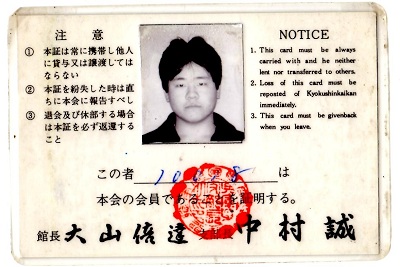 注意
① 本証は常に携帯し他人
に貸与又は譲渡しては
ならない
② 本証を紛失した時は直
ちに本会に報告すべし
③ 退会及び休部する場合
は本証を必ず返還する
こと
NOTICE
1. This card must be always
carried with and he neither
lent nor transferred to others.
2. Loss of this card must be
reposted of Kyokushinkaikan
immediately.
3. This card must be givenback
when you leave.
この者 は
本会の会員であることを証明する。
館長 大山倍達 中村誠